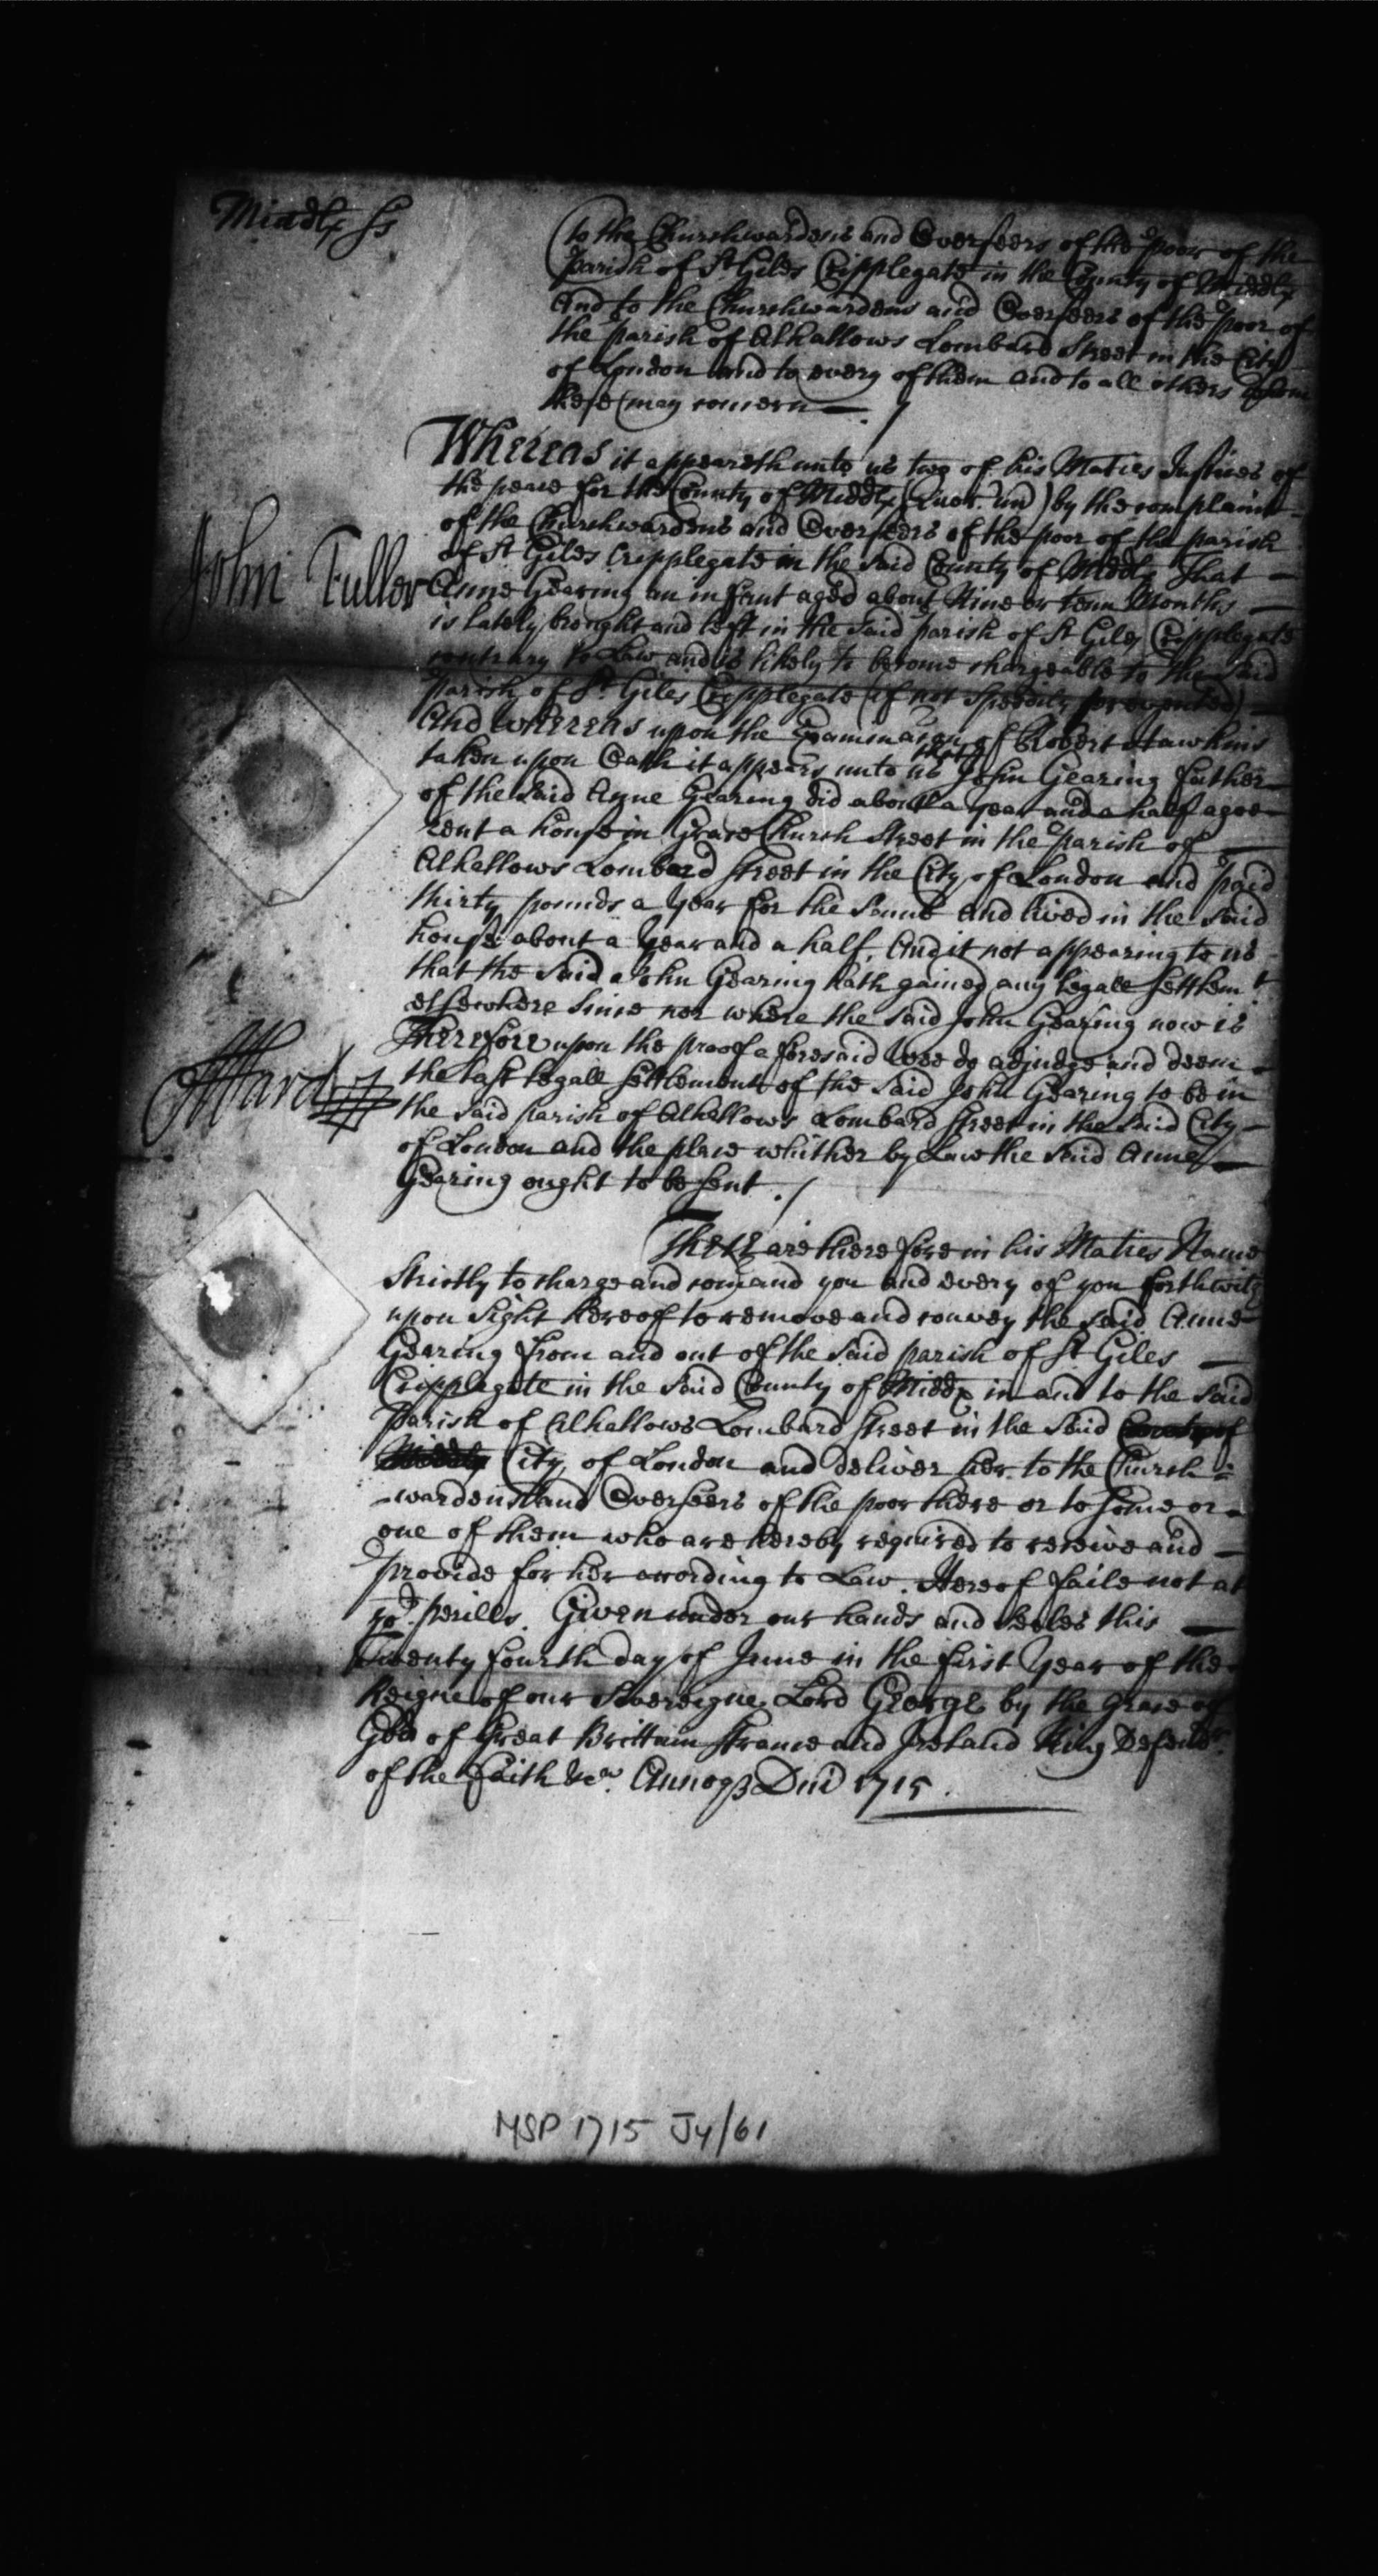 Middx ss
To the Churchwardens and Overseers of the Poor of the
Parish of St Giles Cripplegate in the County of Middx
And to the Churchwardens and Overseers of the Poor of
the Parish of Alhallows Lombard Street in the City
of London and to every of them and to all others whom
these may concern
Whereas it appeareth unto us two of his Maties Justices of
the peace for the County of Middx (Quor: un) by the complaint
of the Churchwardens and Overseers of the poor of the parish
of St Giles Cripplegate in the said County of Middx That
John Fuller
Anne Gearing an infant aged about Nine or tenn Months
is lately brought and left in the said parish of St Giles Cripplegate
contrary to Law and is likely to become chargeable to the said
Parish of St Giles Cripplegate (if not speedily prevented)
And Whereas upon the Examinacon of Robert Hawkins
taken upon Oath it appears unto us that John Gearing father
of the said Anne Gearing did about a year and a half agoe
rent a house in Grace Church Street in the Parish of
Alhallows Lombard street in the City of London and paid
thirty pounds a year for the same and lived in the said
house about a Year and a half, And it not appearing to us
that the said John Gearing hath gained any legall settlemt
elsewhere since nor where the said John Gearing now is
Therefore upon the proofe aforesaid Wee do adjudge and deem
the last legall settlement of the said John Gearing to be in
Ward
the said parish of Alhallows Lombard street in the said City
of London and the place whither by Law the said Anne
Gearing ought to be sent
These are therefore in his Maties Name
strictly to charge and comand you and every of you forthwith
upon sight hereof to remove and convey the said Anne
Gearing from and out of the said parish of St Giles
Cripplegate in the said County of Middx in and to the said
Parish of Alhallows Lombard street in the said County of
Middx City of London and deliver her to the Church=
=wardens and Overseers of the poor there or to some or
one of them who are hereby required to receive and
provide for her according to Law. Hereof faile not at
yor. perills. Given under our hands and seales this
Twenty fourth day of June in the first Year of the
Reigne of our Sovereigne Lord George by the grace of
God of Great Brittain France and Ireland King Defendr
of the Faith &ca. Annoq3 Dni 1715.
MSP 1715 Jy/61